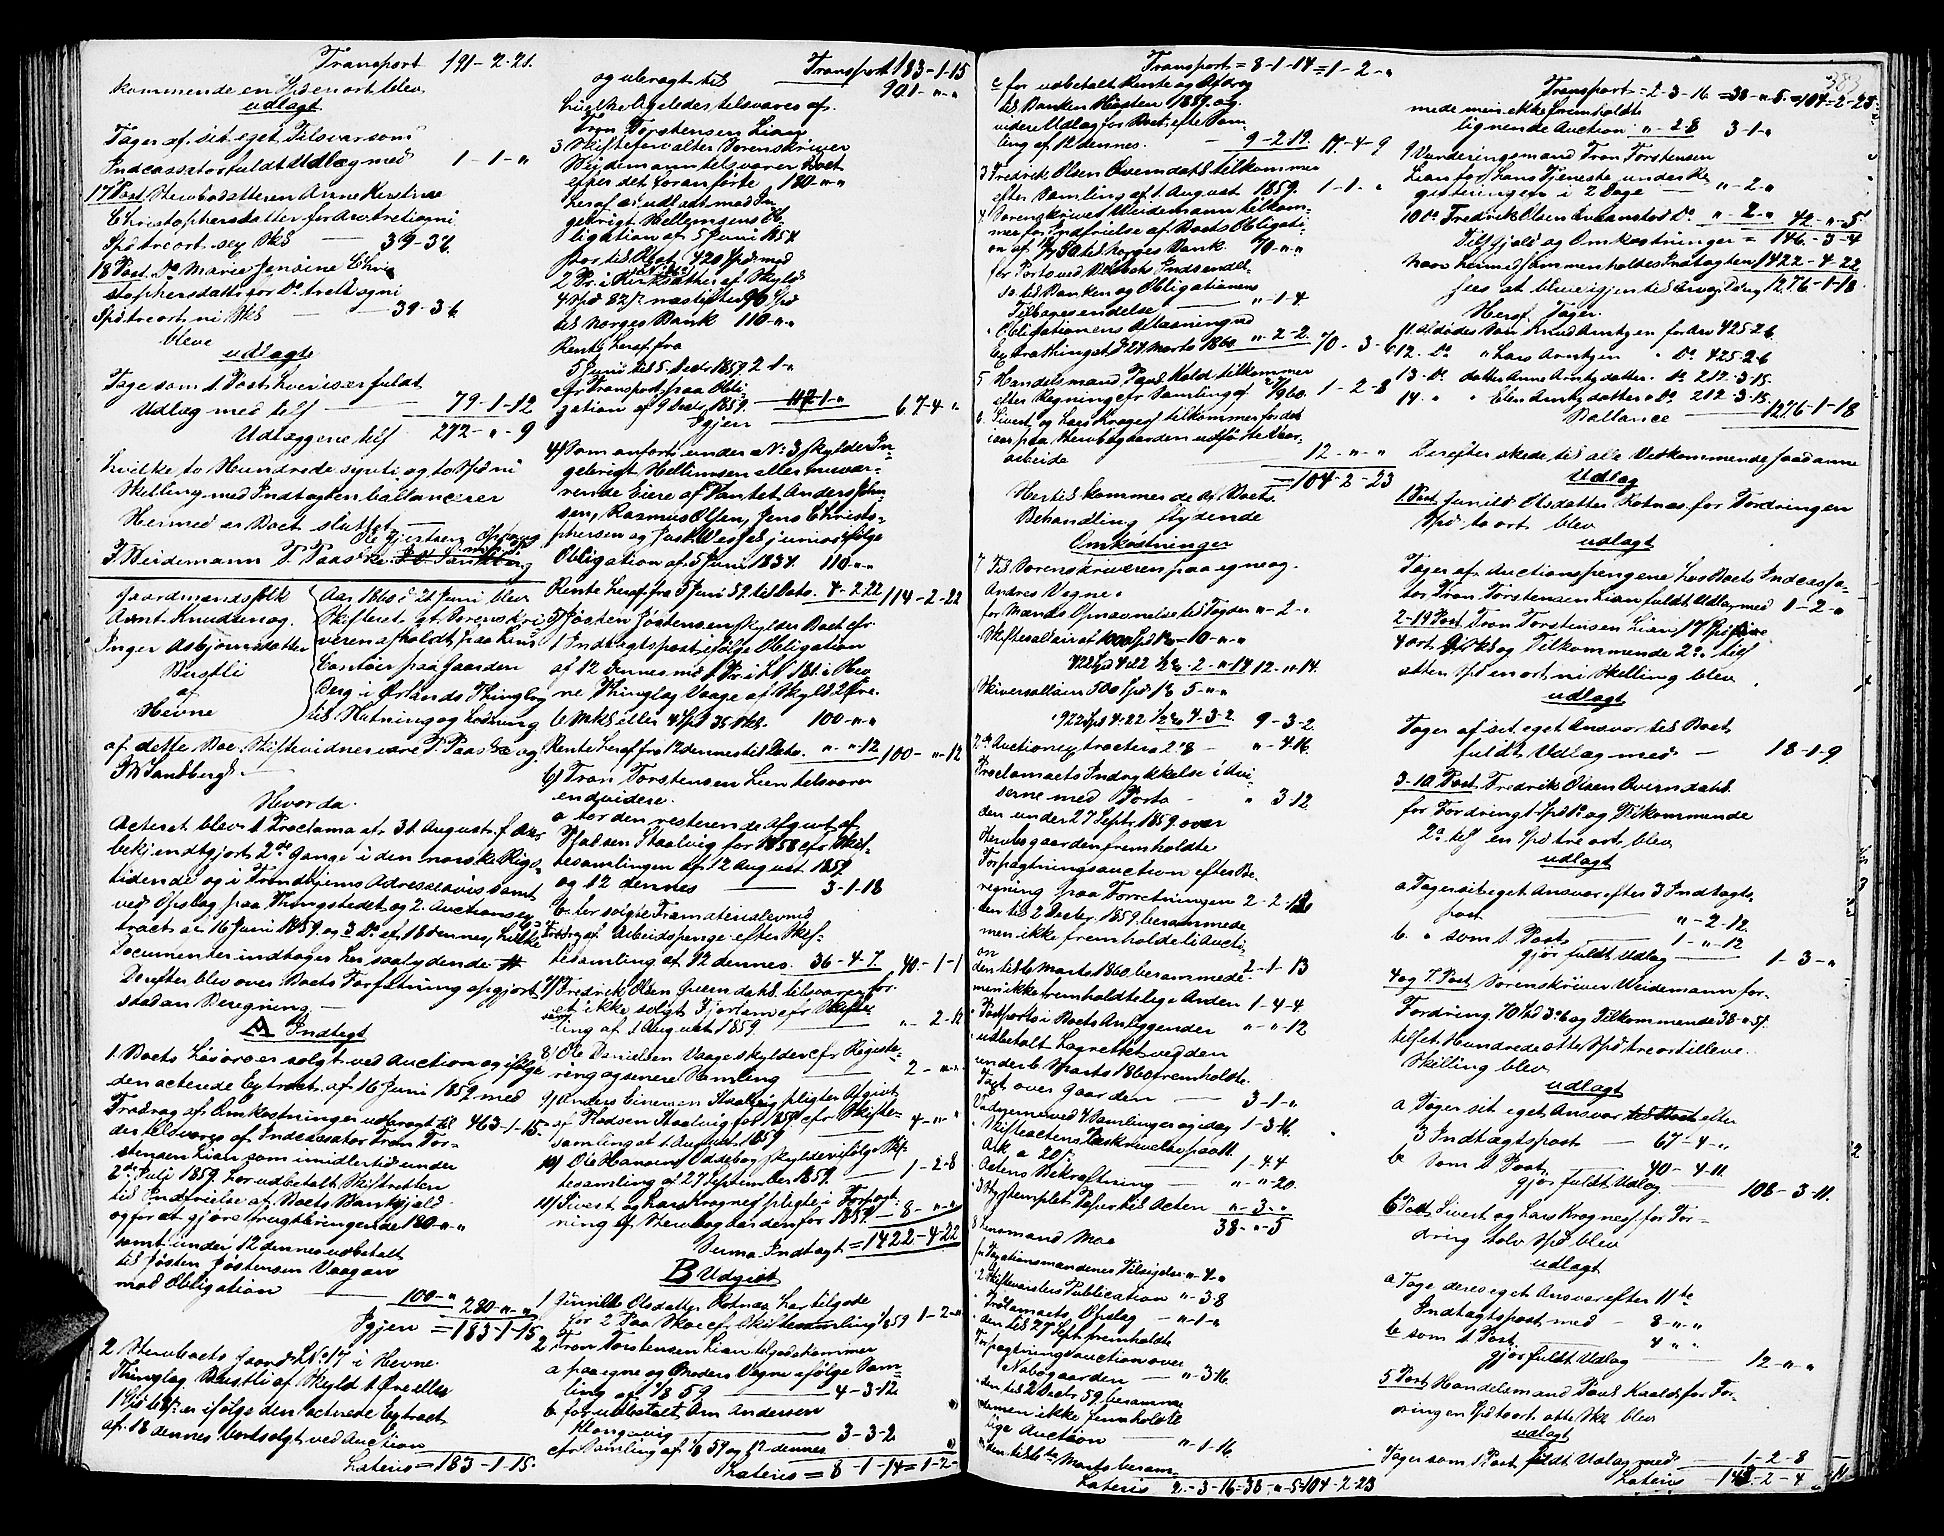 Transport 191-2-21.
kommende en Spd en ort blev
udlagt
Tager af sit eget Tilsvar som
Indcassator fuldt Udlæg med 1-1-"
17 Post Stervbodatteren Anne Kirstine
Christophersdatter for Arv tretiogni
Spd tre ort sex Sks 39-3-6.
18 Post Do Marie Jensine Chri-
stophersdatter for Do tretiogni
Spd tre ort ni Sks 39-3-6.
bleve
udlagte
Tage som 1 Post hver især fuldt
Udlæg med tils 79-1-12
Udlæggene tils 272-"-9
hvilke to Hundrede sytti og to Spd ni
Skilling med Indtægten ballancerer
Hermed er Boet sluttet
T Weidemann P. Paaske
Gaardmandsfolk
Arnt Knudsen og
Inger Asbjørnsdatter
Bustli
af
Hevne
Aar 1860 d 21 Juni blev
Skifteret af Sorenskri-
veren afholdt paa hans
Contoir paa Gaarden
Berg i Ørlands Thinglag
til Slutning og Lodning
af dette Boe. Skiftevidner vare P. Paaske og
J W Sandberg.
Hvorda
Acteret blev 1 Proclama af 31 August f Aar
bekjendtgjort 2de Gange i den norske Rigs-
tidende og i Trondhjems Adresseavis samt
ved Opslag paa Thingstedet og 2. Auctionsex-
tract af 16 Juni 1859 og 3 Do af 18 dennes, hvilke
Documenter indtages her saalydende #
Derefter blev over Boets Forfatning opgjort
saadan Beregning
A Indtægt
1. Boets Løsøre er solgt ved Auction og ifølge
den acterede Extract af 16 Juni 1859 med
Fradrag af Omkostninger udbragt til 463-1-15.
der tilsvares af Indcassator Tron Tor-
stensen Lian som imidlertid under
2de Juli 1859 har udbetalt Skifteretten
til Indfrielse af Boets Bankgjæld
og for at gjøre frugtbringende 180-"-"
samt under 12 dennes udbetalt
til Josten Jostensen Vaagan
mod Obligation 100-"-" 280-"-"
Igjen =183-1-15
2 Stervboets Gaard L No 17 i Hevne
Thinglag Bustli af Skyld 1 Øre eller
er ifølge den acterede Extract
af 18 dennes bortsolgt ved Auction
Lateris =183-1-15.
Transport 183-1-15
og udbragt til 901-"-"
hvilke ligeledes tilsvares af
Tron Torstensen Lian
3 Skifteforvalter Sorenskriver
Weidemann tilsvarer Boet
efter det foranførte 180-"-"
heraf er udlaant mod In-
gebrigt Hellemsens Ob-
ligation af 5 Juni 1854
stor til Rest 420 Spd med
2 Pr. i Kirksæther af Skyld
4 Spd 82 næstefter 90 Spd
til Norges Bank 110-"-"
Rente heraf fra
5 Juni til 5 Decbr 1859 2-1-"
cfr Transport paa Obli-
gation af 9 Decbr 1859. 112-1-"
Igjen 67-4-"
4) Som anført under No 3 skylder In-
gebrigt Hellemsen eller nuvæ-
rende Eiere af Pantet Anders Johan-
sen, Rasmus Olsen, Jens Christo-
phersen og Just Wessel junior ifølge
Obligation af 5 Juni 1854. 110-"-"
Rente heraf fra 5 Juni 59 til Dato 4-2-22 114-2-22
5) Josten Jostensen skylder Boet cfr
1 Indtægtspost ifølge Obligation
af 12 dennes mod 1 Pr. i i Hev-
ne Thinglag Vaage af Skyld 2 Øre
6 Mkl eller 4 Spd 35 Sks 100-"-"
Rente heraf fra 12 dennes til Dato "-"-12 100-"-12
6) Tron Torstensen Lian tilsvarer
endvidere
a for den resterende Afgivt af
Pladsen Staalvig for 1858 cfr Skif-
tesamlingen af 12 August 1859
og 12 dennes 3-1-18
b. for solgte Træmaterialer med
Fradrag af Arbeidspenge efter Skif-
tesamling af 12 dennes 36-4-7. 40-1-1
7) Fredrik Olsen Øverndahl tilsvarer for
et ikke solgt Fjortein cfr Skiftesam-
ling af 1 August 1859 "-2-12
8) Ole Danielsen Vaage skylder cfr Registe-
ring og senere Samling 2-"-"
9) Anders Einersen Staalvig pligter Afgivt
af Pladsen Staalvig for 1859 cfr Skifte-
samling af 1 August 1859 4-"-"
10) Ole Hansens Oddebog skylder ifølge Skif-
tesamling af 27 September 1859 1-2-8
11) Sivert og Lars Kragnes pligte i Forpagt-
ning af Stervbogaarden for 1859 8-"-"
Summa Indtægt =1422-4-22
B Udgivt
1 Gunille Olsdatter Rotnaa har tilgode
for 2 Paa Skoe cfr Skiftesamling 1/8 59 1-2-"
2 Tron Torstensen Lian tilgodekommer
a paa egne og Broders Vegne ifølge Sam-
ling af 1/8 59 4-3-12
b for udbetalt Arn Andersen
Klongsvig 3-3-2
cfr Samling af 1/8 59 og 12 dennes
Lateris = 8-1-14=1-2-"
Transport = 8-1-14=1-2-"
c for udbetalt Rente og Afdrag
til Banken Høsten 1859 og
videre Udlag for Boet efter Sam-
ling af 12 dennes. 9-2-19. 17-4-9
3 Fredrik Olsen Øverndahl tilkommer
efter Samling af 1 August 1859. 1-1-"
4 Sorenskriver Weidemann tilkom-
mer for Indfrielse af Boets Obligati-
on af til Norges Bank 70-"-"
for Porto ved Beløbets Indsendel-
se til Banken og Obligationens
Tilbagesendelse "-1-4
Obligationens Aflæsning ved
Extrathinget d 24 Marts 1860 "-2-2. 70-3-6
5 Handelsmand Paul Kald tilkommer
efter Regning cfr Samling af 60. 1-2-8
6. Sivert og Lars Kragnes tilkommer for det
i Aar paa Stervbogaarden udførte Vaar-
arbeide 12-"-"
=104-2-23
Hertil kommer de af Boets
Behandling flydende
Omkostninger
7 Til Sorenskriveren paa egne og
Andres Vegne
for Mænds Opnævnelse til Taxten "-2-"
Skiftesallair af 1000 Spd 1% =10-"-"
422 Spd 4-22 ½% 2-"-14 12-"-14.
Skriversallair 500 Spd 1% 5-"-"
922 Spd 4-22 ½% 4-3-2 9-3-2.
2de Auctionsextracter a 2-8 "-4-16.
Proclamaets Indrykkelse i Avi-
serne med Porto " 3-12
den under 27 Septr. 1859 over
Stervbogaarden fremholdte
Forpagtningsauction efter Be-
regning paa Forretningen 2-2-12
den til 2 Decbr. 1859 berammede
men ikke fremholdte Aucti-
on
den til 6 Marts 1860 berammede 2-1-13
men ikke fremholdte lige Anden 1-4-4
Postporto i Boets Anliggender "-"-12
udbetalt Lagrettet ved den
under 6 Marts 1860 fremholdte
Taxt over Gaarden 3-1-"
Vidnerne ved 4 Samlinger og idag 1-3-16.
Skifteactens Beskrivelse paa 11
Ark a 20 s 1-4-4
Actens Bekræftning "-"-20.
3 Stk stemplet Papir til Acten "-3-"
38-"-5
8 Lensmand Moe
for Taxationsmændenes Tilsigelse "-4-"
2 Skiftevarslers Publication "-3-8
Proclamaets Opslag "-1-"
den til 27 Sept fremholdte
Forpagtningsauction over
Nabogaarden "-3-16.
den til 2 Decbr 59 beramme-
de men ikke fremholdte
lige Auction "-1-16
den til 6te Marts beram-
Lateris 2-3-16=38-"-5=104-2-23
383
Transport =2-3-16=38-"-5=104-2-23
mede men ikke fremholdte
lignende Auction "-2-8 3-1-"
9 Vurderingsmand Tron Torstensen
Lian for hans Tjeneste under Re-
gisteringen i 2 Dage "-2-"
10 Do Fredrik Olsen Do "-2-" 42-"-5
Tils Gjæld og Omkostninger = 146-3-4
naar hermed sammenholdes Indtægten 1422-4-22
sees at blive igjen til Arvedeling 1276-1-18
Heraf Tager
11 afdødes Søn Knud Arntzen for Arv 425-2-6
12. Do " Lars Arntzen " Do 425-2-6
13. Do datter Anne Arntzdatter " Do 212-3-15.
14. " " Elen Arntzdatter " Do 212-3-15.
Ballance 1276-1-18
Derefter skede til alle Vedkommende saadanne
Udlæg
1 Post Gunild Olsdatter Rotnaa for Fordring en
Spd to ort blev
udlagt
Tager af Auctionspengene hos Boets Indcassa-
tor Tron Torstensen Lian fuldt Udlæg med 1-2-"
2-19 Post Tron Torstensen Lian 17 Spd
4 ort 9 Sks og Tilkommende 2 s tils
atten Spd en ort ni Skilling blev
udlagt
Tager af sit eget Ansvar til Boet
fuldt Udlæg med 18-1-9
3-10 Post Fredrik Olsen Øverndahl
for Fordring 1 Spd 1 s og Tilkommende
2 s tils en Spd tre ort blev
udlagt
a Tager sit eget Ansvar efter 7 Indtægts-
post "-2-12.
b. " som 1 Post 1-"-12
gjør fuldt Udlæg 1-3-"
4 og 7. Post Sorenskriver Weidemann for
Fordring 70 Spd 3-6 og Tilkommende 38-"-5
tils et Hundrede otte Spd tre ort elleve
Skilling blev
udlagt
a Tager sit eget Ansvar efter
3 Indtægtspost 67-4-"
b Som 1 Post 40-4-11
gjør fuldt Udlæg 108-3-11.
6 Post Sivert og Lars Kragnes for For-
dring tolv Spd blev
udlagt
a Tage deres eget Ansvar efter 11te
Indtægtspost med 8-"-"
b som 1 Post 4-"-"
gjør fuldt Udlæg 12-"-"
5 Post Handelsmand Paul Kald for For-
dring en Spd to ort otte Sks blev
udlagt
Tager som 1 Post fuldt Udlæg med 1-2-8
Lateris 143-2-4